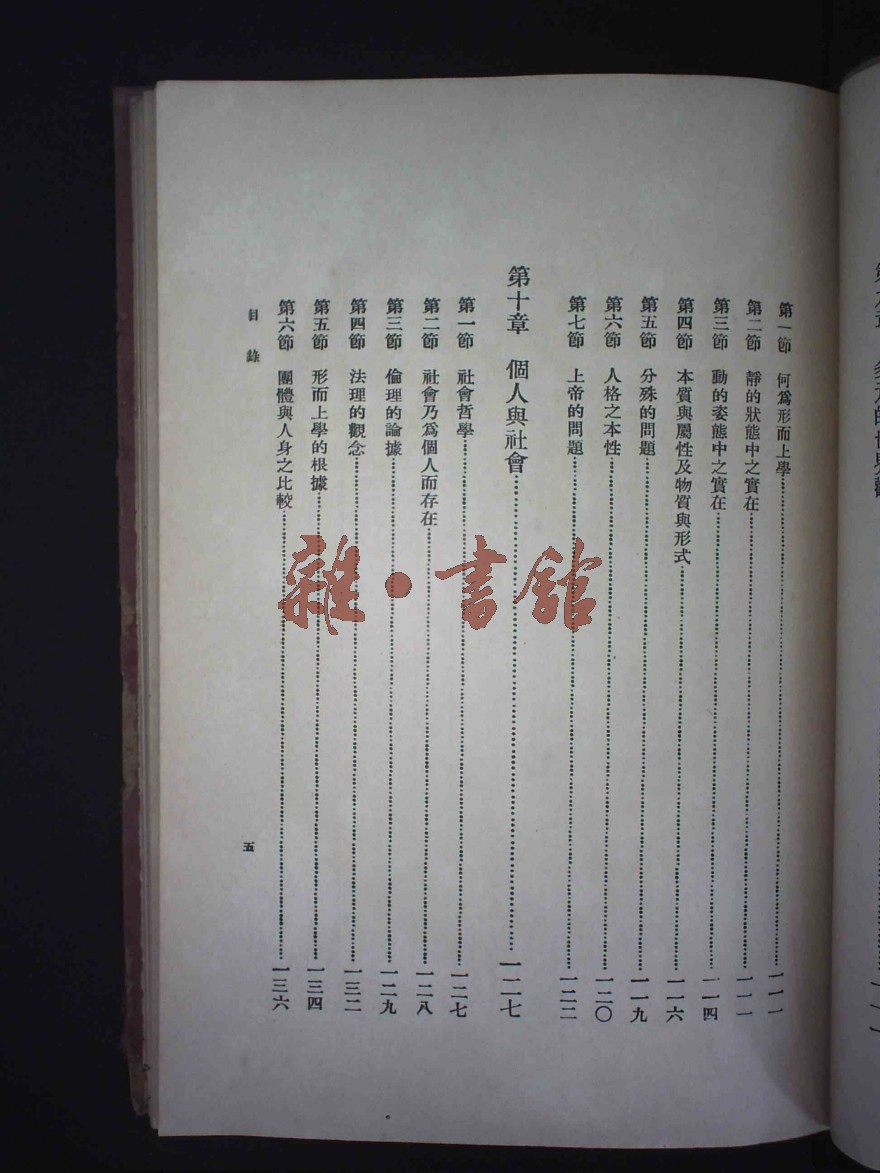 第一節 何爲形而上學……一一一
第二節 靜的狀態中之實在……一一一
第三節 動的姿態中之實在……一一四
第四節 本質與屬性及物質與形式……一一六
第五節 分殊的問題……一一九
第六節 人格之本性……一二〇
第七節 上帝的問題……一二二
第十章 個人與社會……一二七
第一節 社會哲學……一二七
第二節 社會乃爲個人而存在……一二八
第三節 倫理的論據……一二九
第四節 法理的觀念……一三二
第五節 形而上學的根據……一三四
第六節 團體與人身之比較……一三六
目錄 五
雜·書館